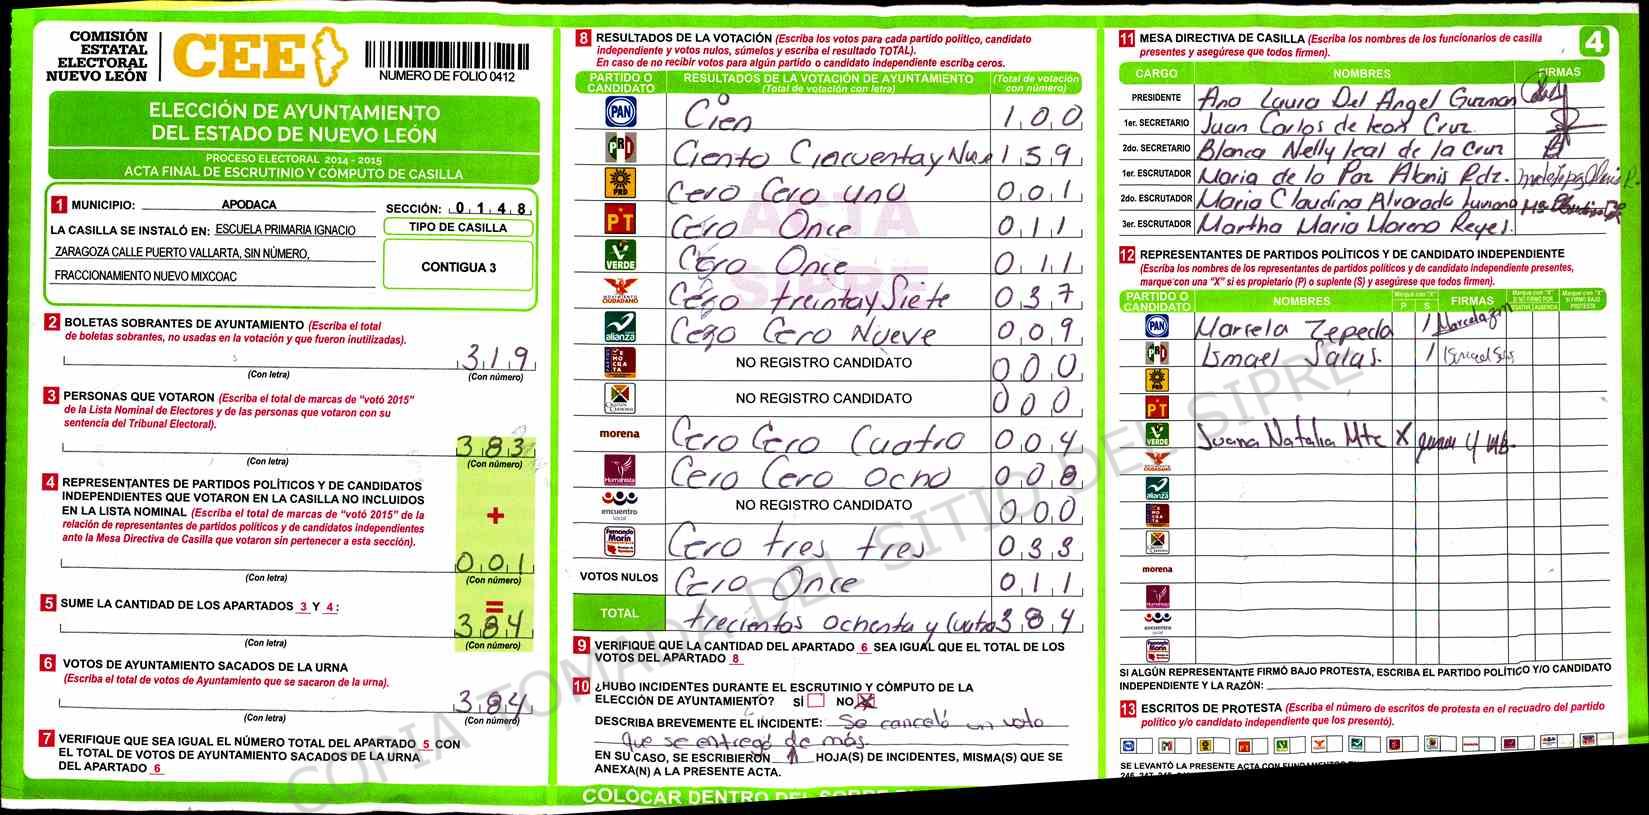 COMISIÓN
ESTATAL
ELECTORAL
NUEVO LEÓN
CEE
NUMERO DE FOLIO 0412
ELECCIÓN DE AYUNTAMIENTO
DEL ESTADO DE NUEVO LEÓN
PROCESO ELECTORAL 2014 - 2015
ACTA FINAL DE ESCRUTINIO Y CÓMPUTO DE CASILLA
1 MUNICIPIO: APODACA SECCIÓN: 0148
LA CASILLA SE INSTALÓ EN: ESCUELA PRIMARIA IGNACIO
ZARAGOZA CALLE PUERTO VALLARTA, SIN NÚMERO,
FRACCIONAMIENTO NUEVO MIXCOAC
TIPO DE CASILLA
CONTIGUA 3
2 BOLETAS SOBRANTES DE AYUNTAMIENTO (Escriba el total
de boletas sobrantes, no usadas en la votación y que fueron inutilizadas).
319
(Con letra) (Con número)
3 PERSONAS QUE VOTARON (Escriba el total de marcas de "votó 2015"
de la Lista Nominal de Electores y de las personas que votaron con su
sentencia del Tribunal Electoral).
383
(Con letra) (Con número)
4 REPRESENTANTES DE PARTIDOS POLÍTICOS Y DE CANDIDATOS
INDEPENDIENTES QUE VOTARON EN LA CASILLA NO INCLUIDOS
EN LA LISTA NOMINAL (Escriba el total de marcas de "votó 2015" de la
relación de representantes de partidos políticos y de candidatos independientes
ante la Mesa Directiva de Casilla que votaron sin pertenecer a esta sección).
+
001
(Con letra) (Con número)
5 SUME LA CANTIDAD DE LOS APARTADOS 3 Y 4:
=
384
(Con letra) (Con número)
6 VOTOS DE AYUNTAMIENTO SACADOS DE LA URNA
(Escriba el total de votos de Ayuntamiento que se sacaron de la urna).
384
(Con letra) (Con número)
7 VERIFIQUE QUE SEA IGUAL EL NÚMERO TOTAL DEL APARTADO 5 CON
EL TOTAL DE VOTOS DE AYUNTAMIENTO SACADOS DE LA URNA
DEL APARTADO 6
8 RESULTADOS DE LA VOTACIÓN (Escriba los votos para cada partido político, candidato
independiente y votos nulos, súmelos y escriba el resultado TOTAL).
En caso de no recibir votos para algún partido o candidato independiente escriba ceros.
PARTIDO O CANDIDATO RESULTADOS DE LA VOTACIÓN DE AYUNTAMIENTO (Total de votación con letra) (Total de votación con número)
PAN Cien 100
PRD Ciento Cincuenta y Nue 159
PRD Cero Cero uno 001
PT Cero Once 011
VERDE Cero Once 011
MOVIMIENTO CIUDADANO Cero treinta y Siete 037
alianza Cero Cero Nueve 009
NO REGISTRO CANDIDATO 000
NO REGISTRO CANDIDATO 000
morena Cero Cero Cuatro 004
Humanista Cero Cero Ocho 008
encuentro social NO REGISTRO CANDIDATO 000
Fernando Marín Cero tres tres 033
VOTOS NULOS Cero Once 011
TOTAL trecientos ochenta y Cuatro 384
ACTA
SIPRE
9 VERIFIQUE QUE LA CANTIDAD DEL APARTADO 6 SEA IGUAL QUE EL TOTAL DE LOS
VOTOS DEL APARTADO 8
10 ¿HUBO INCIDENTES DURANTE EL ESCRUTINIO Y CÓMPUTO DE LA
ELECCIÓN DE AYUNTAMIENTO? SÍ NO X
DESCRIBA BREVEMENTE EL INCIDENTE: Se canceló un voto
que se entregó de más
EN SU CASO, SE ESCRIBIERON 1 HOJA(S) DE INCIDENTES, MISMA(S) QUE SE
ANEXA(N) A LA PRESENTE ACTA.
COLOCAR DENTRO DEL SOBRE
11 MESA DIRECTIVA DE CASILLA (Escriba los nombres de los funcionarios de casilla
presentes y asegúrese que todos firmen).
4
CARGO NOMBRES FIRMAS
PRESIDENTE Ana Laura Del Angel Guzman
1er. SECRETARIO Juan Carlos de leon Cruz
2do. SECRETARIO Blanca Nelly leal de la Cruz
1er. ESCRUTADOR Maria de la Paz Alanis Rdz.
2do. ESCRUTADOR Maria Claudina Alvarado
3er. ESCRUTADOR Martha Maria Moreno Reyes.
12 REPRESENTANTES DE PARTIDOS POLÍTICOS Y DE CANDIDATO INDEPENDIENTE
(Escriba los nombres de los representantes de partidos políticos y de candidato independiente presentes,
marque con una "X" si es propietario (P) o suplente (S) y asegúrese que todos firmen).
PARTIDO O CANDIDATO NOMBRES P S FIRMAS
PAN Marcela Zepeda /
PRD Ismael Salas. /
PRD
PT
VERDE Juana Natalia Mtz X
CIUDADANO
alianza
morena
Humanista
encuentro
Fernando Marín
SI ALGÚN REPRESENTANTE FIRMÓ BAJO PROTESTA, ESCRIBA EL PARTIDO POLÍTICO Y/O CANDIDATO
INDEPENDIENTE Y LA RAZÓN:
13 ESCRITOS DE PROTESTA (Escriba el número de escritos de protesta en el recuadro del partido
político y/o candidato independiente que los presentó).
SE LEVANTÓ LA PRESENTE ACTA CON
COPIA TOMADA DEL SITIO DEL SIPRE